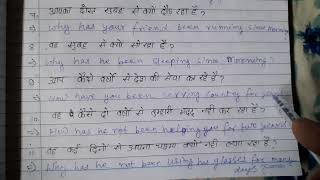 आपका दोस्त सुबह से क्यों दौड़ रहा है?
Why has your friend been running since morning
वह सुबह से क्यों सो रहा है?
Why has he been sleeping since morning?
आप कैसे वर्षों से देश की सेवा कर रहे हैं?
How have you been serving country for
वह कैसे दो वर्षों से तुम्हारी मदद नहीं कर रहा है?
How has he not been helping you for two years
वह कई दिनों से अपना चश्मा क्यों नहीं लगा रहा है?
Why has he not been using his glasses for many
days